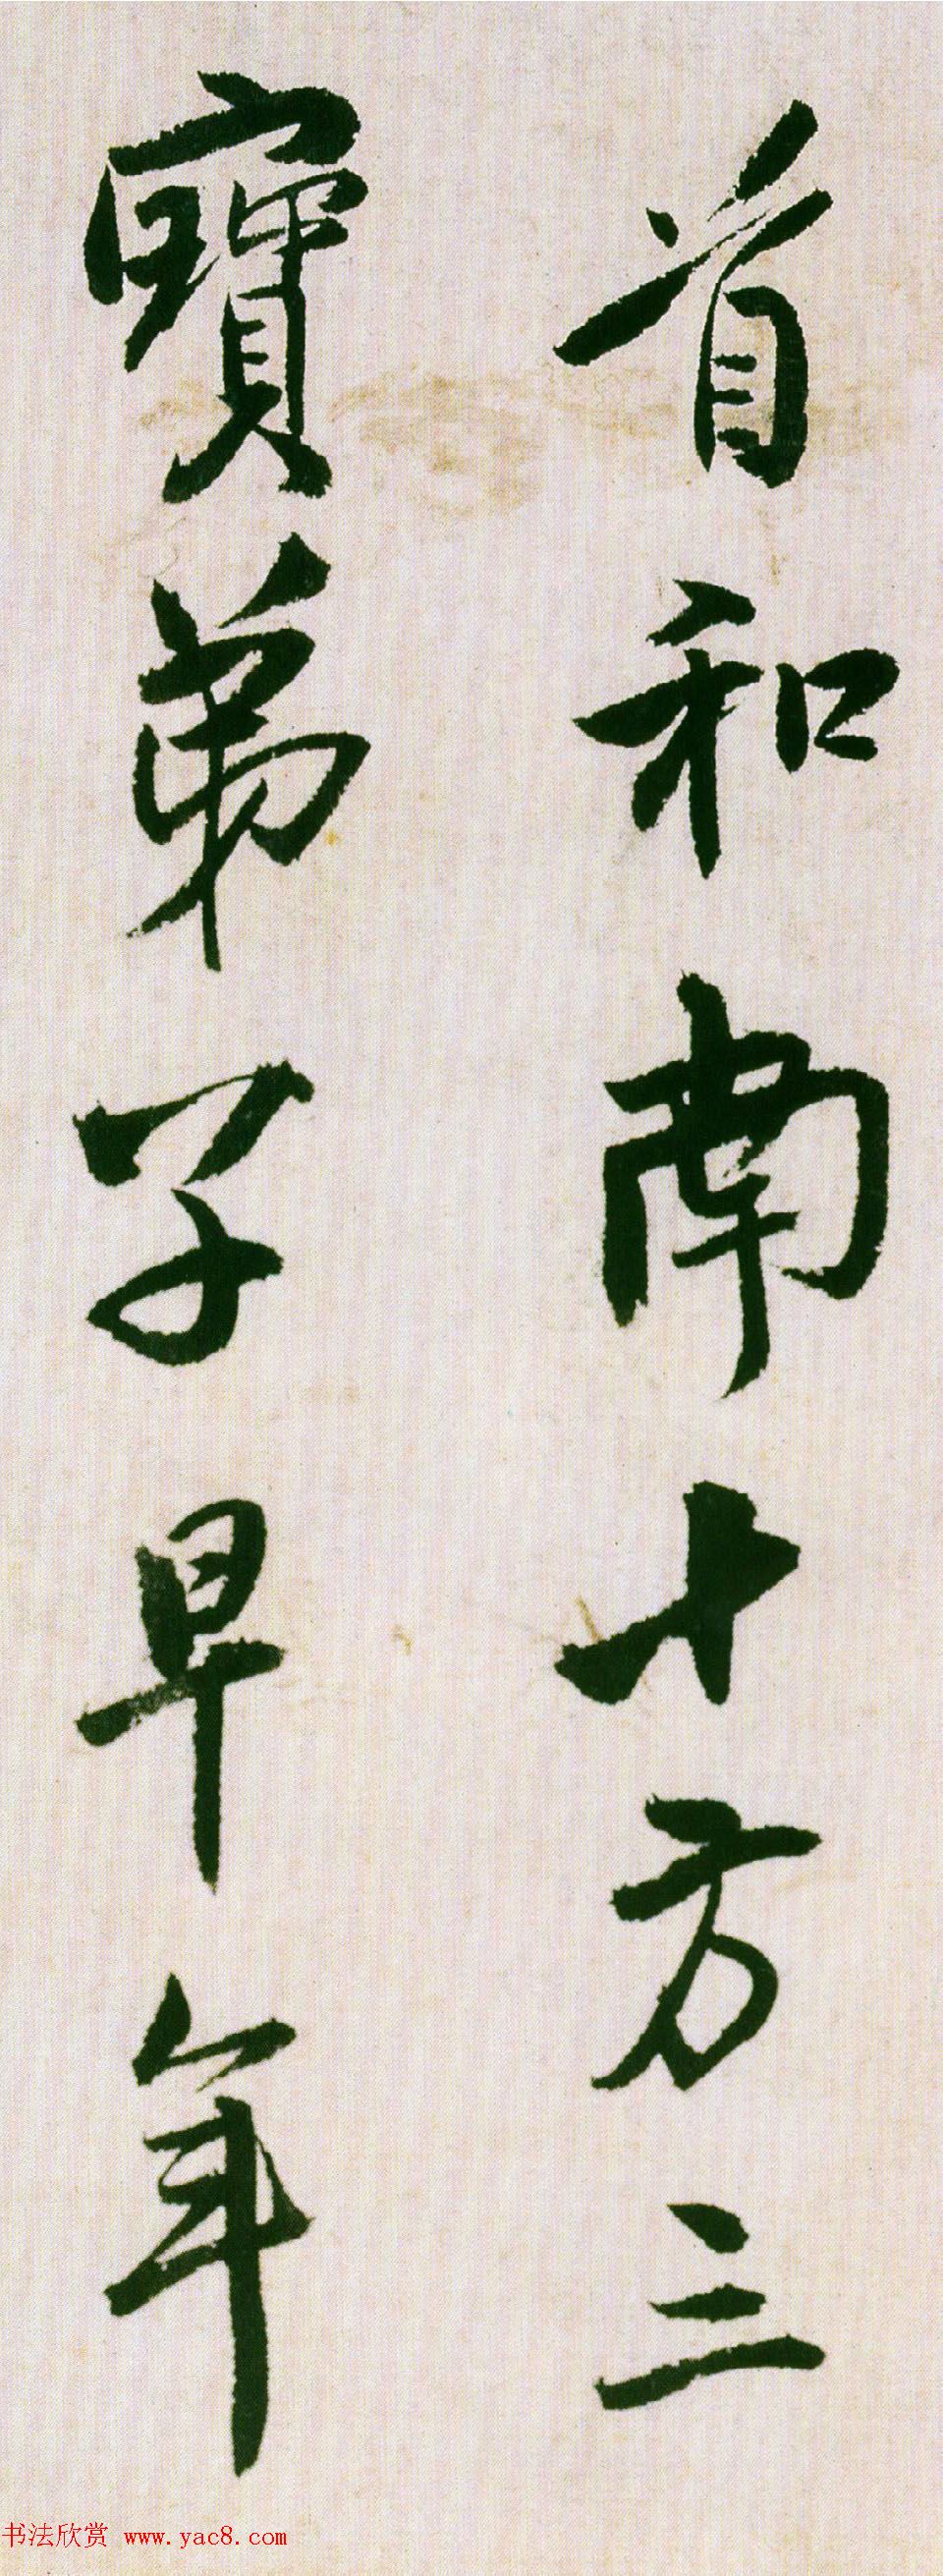 首和南十方三
寶弟子早年
书法欣赏 www.yac8.com